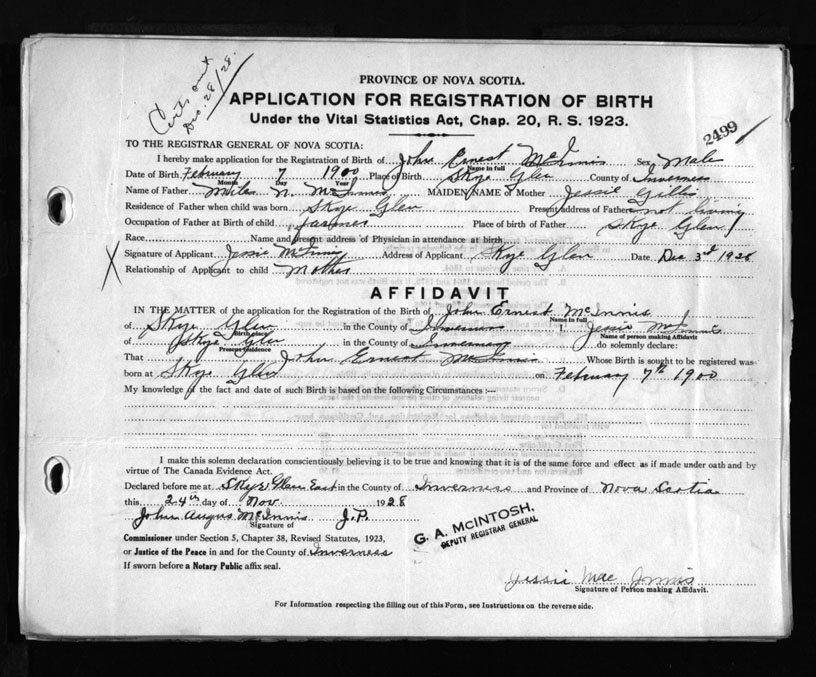 Certs sent
Dec. 28/28.
PROVINCE OF NOVA SCOTIA.
APPLICATION FOR REGISTRATION OF BIRTH
Under the Vital Statistics Act, Chap. 20, R. S. 1923.
2499
TO THE REGISTRAR GENERAL OF NOVA SCOTIA:
I hereby make application for the Registration of Birth of John Ernest McInnis Sex Male
Name in full
Date of Birth February 7 1900 Place of Birth Skye Glen County of Inverness
Month Day Year
Name of Father Miles N. McInnis MAIDEN NAME of Mother Jessie Gillis
Residence of Father when child was born Skye Glen Present address of Father not living
Occupation of Father at Birth of child farmer Place of birth of Father Skye Glen
Race Name and present address of Physician in attendance at birth
X Signature of Applicant Jessie McInnis Address of Applicant Skye Glen Date Dec 3rd 1928
Relationship of Applicant to child Mother
AFFIDAVIT
IN THE MATTER of the application for the Registration of the Birth of John Ernest McInnis
Name in full
of Skye Glen in the County of Inverness I, Jessie McInnis
Birth place Name of person making Affidavit
of Skye Glen in the County of Inverness do solemnly declare:
Present residence
That John Ernest McInnis Whose Birth is sought to be registered was
born at Skye Glen on February 7th 1900
My knowledge of the fact and date of such Birth is based on the following Circumstances:—
I make this solemn declaration conscientiously believing it to be true and knowing that it is of the same force and effect as if made under oath and by
virtue of The Canada Evidence Act.
Declared before me at Skye Glen East in the County of Inverness and Province of Nova Scotia
this 24th day of Nov. 1928
John Angus McInnis J.P.
Signature of
Commissioner under Section 5, Chapter 38, Revised Statutes, 1923,
or Justice of the Peace in and for the County of Inverness
If sworn before a Notary Public affix seal.
G. A. McINTOSH,
DEPUTY REGISTRAR GENERAL
Jessie Mac Innis
Signature of Person making Affidavit.
For Information respecting the filling out of this Form, see Instructions on the reverse side.